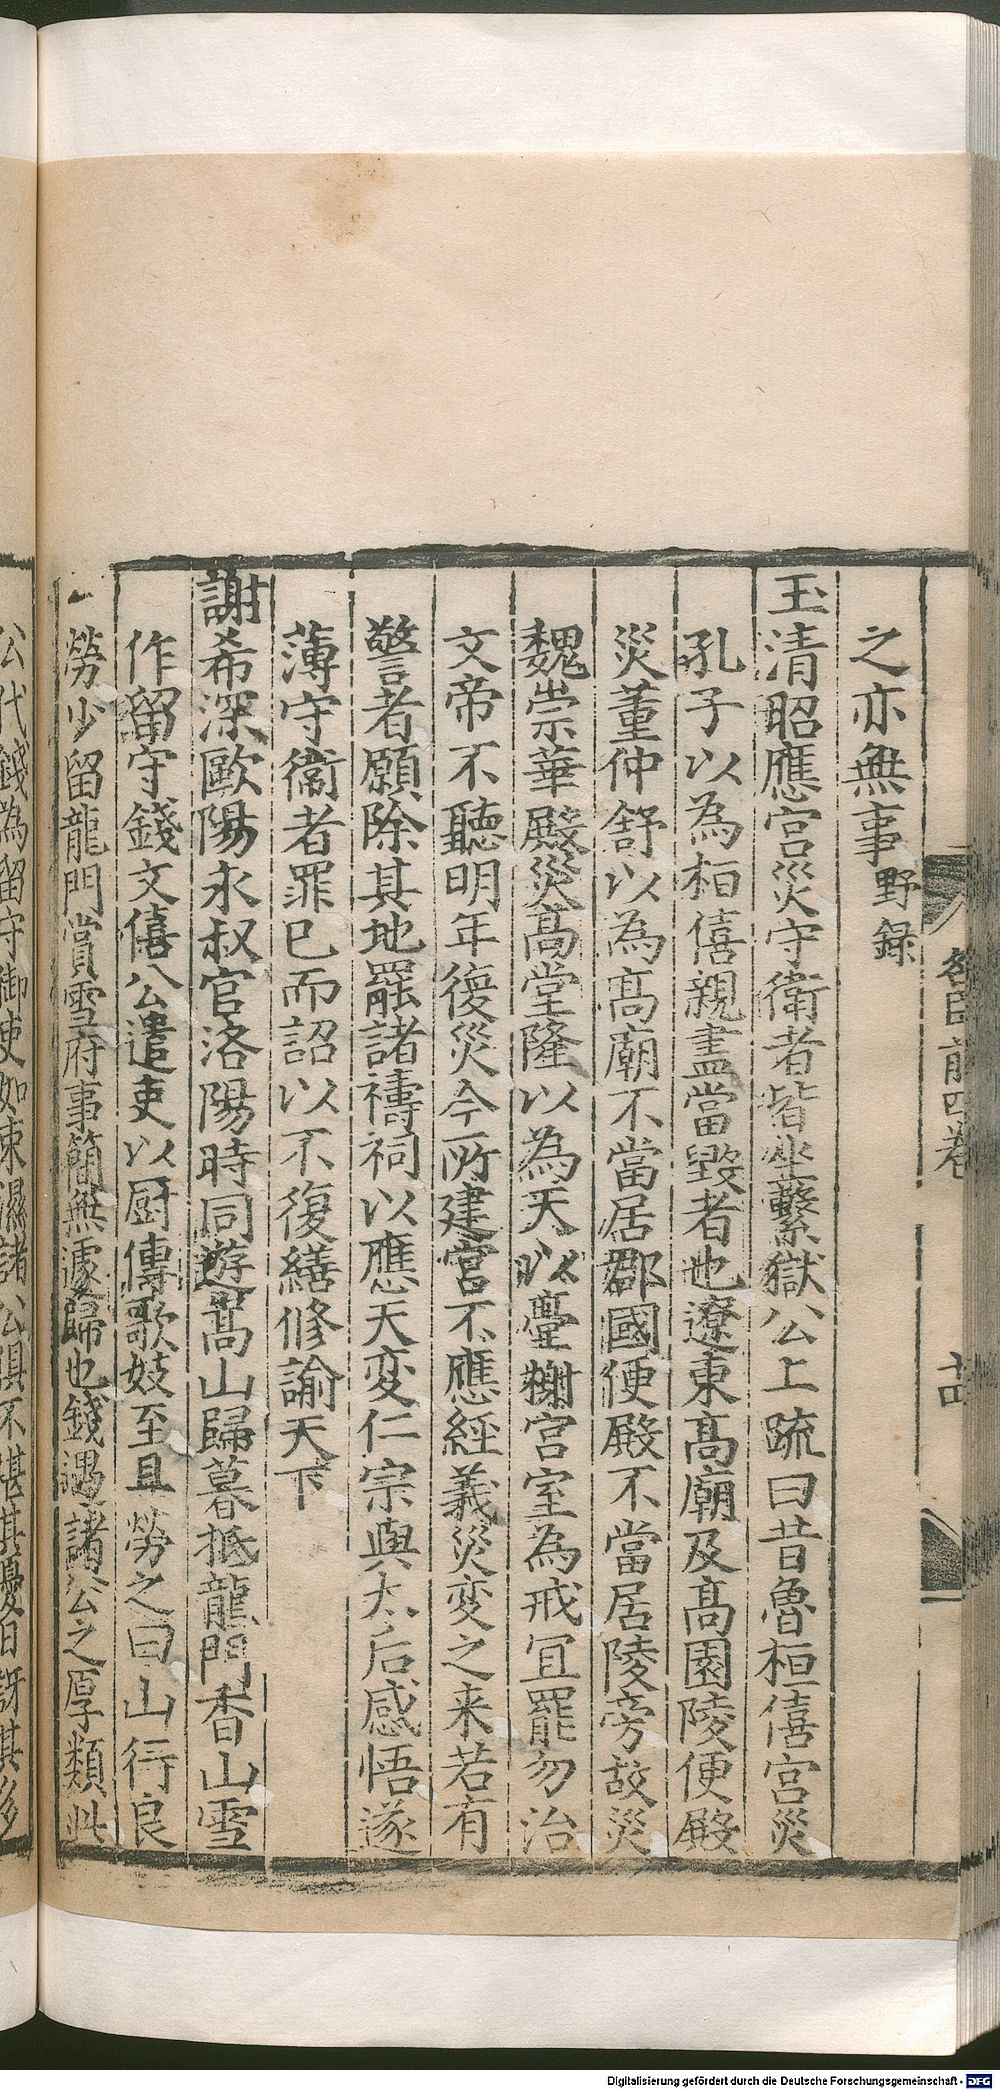 之亦無事野録
玉清昭應宫災守衛者皆坐繫獄公上疏曰昔魯桓僖宫災
孔子以為桓僖親盡當毁者也遼東髙廟及髙園陵便殿
災董仲舒以為髙廟不當居郡國便殿不當居陵旁故災
魏崇華殿災髙堂隆以為天以臺榭宫室為戒冝罷勿治
文帝不聽明年復災今所建宫不應經義災変之来若有
警者願除其地罷諸禱祠以應天変仁宗與太后感悟遂
薄守衞者罪已而詔以不復繕修諭天下
謝希深歐陽永叔官洛陽時同遊嵩山歸暮抵龍門香山雪
作留守錢文僖公遣吏以厨傳歌妓至且勞之曰山行良
勞少留龍門賞雪府事簡無遽歸也錢遇諸公之厚類此
公代錢為留守御吏如束濕諸公俱不堪其憂日訝其多
前四卷
Digitalisierung gefördert durch die Deutsche Forschungsgemeinschaft - DFG